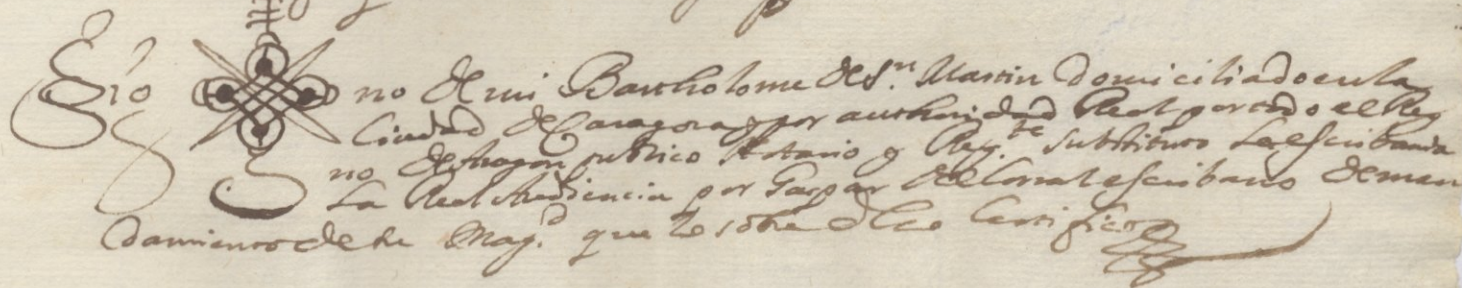 Sig no de mi Bartholome de Sn. Martin Domiciliado en la
Ciudad de Caragoza y por authoridad Real por todo el Rey
no de Aragon publico Notario y Reg.te substituto la escribania
La Real Audiencia por Gaspar del Corral escribano de man
damiento de su Mag.d que lo sobre dho Certifico